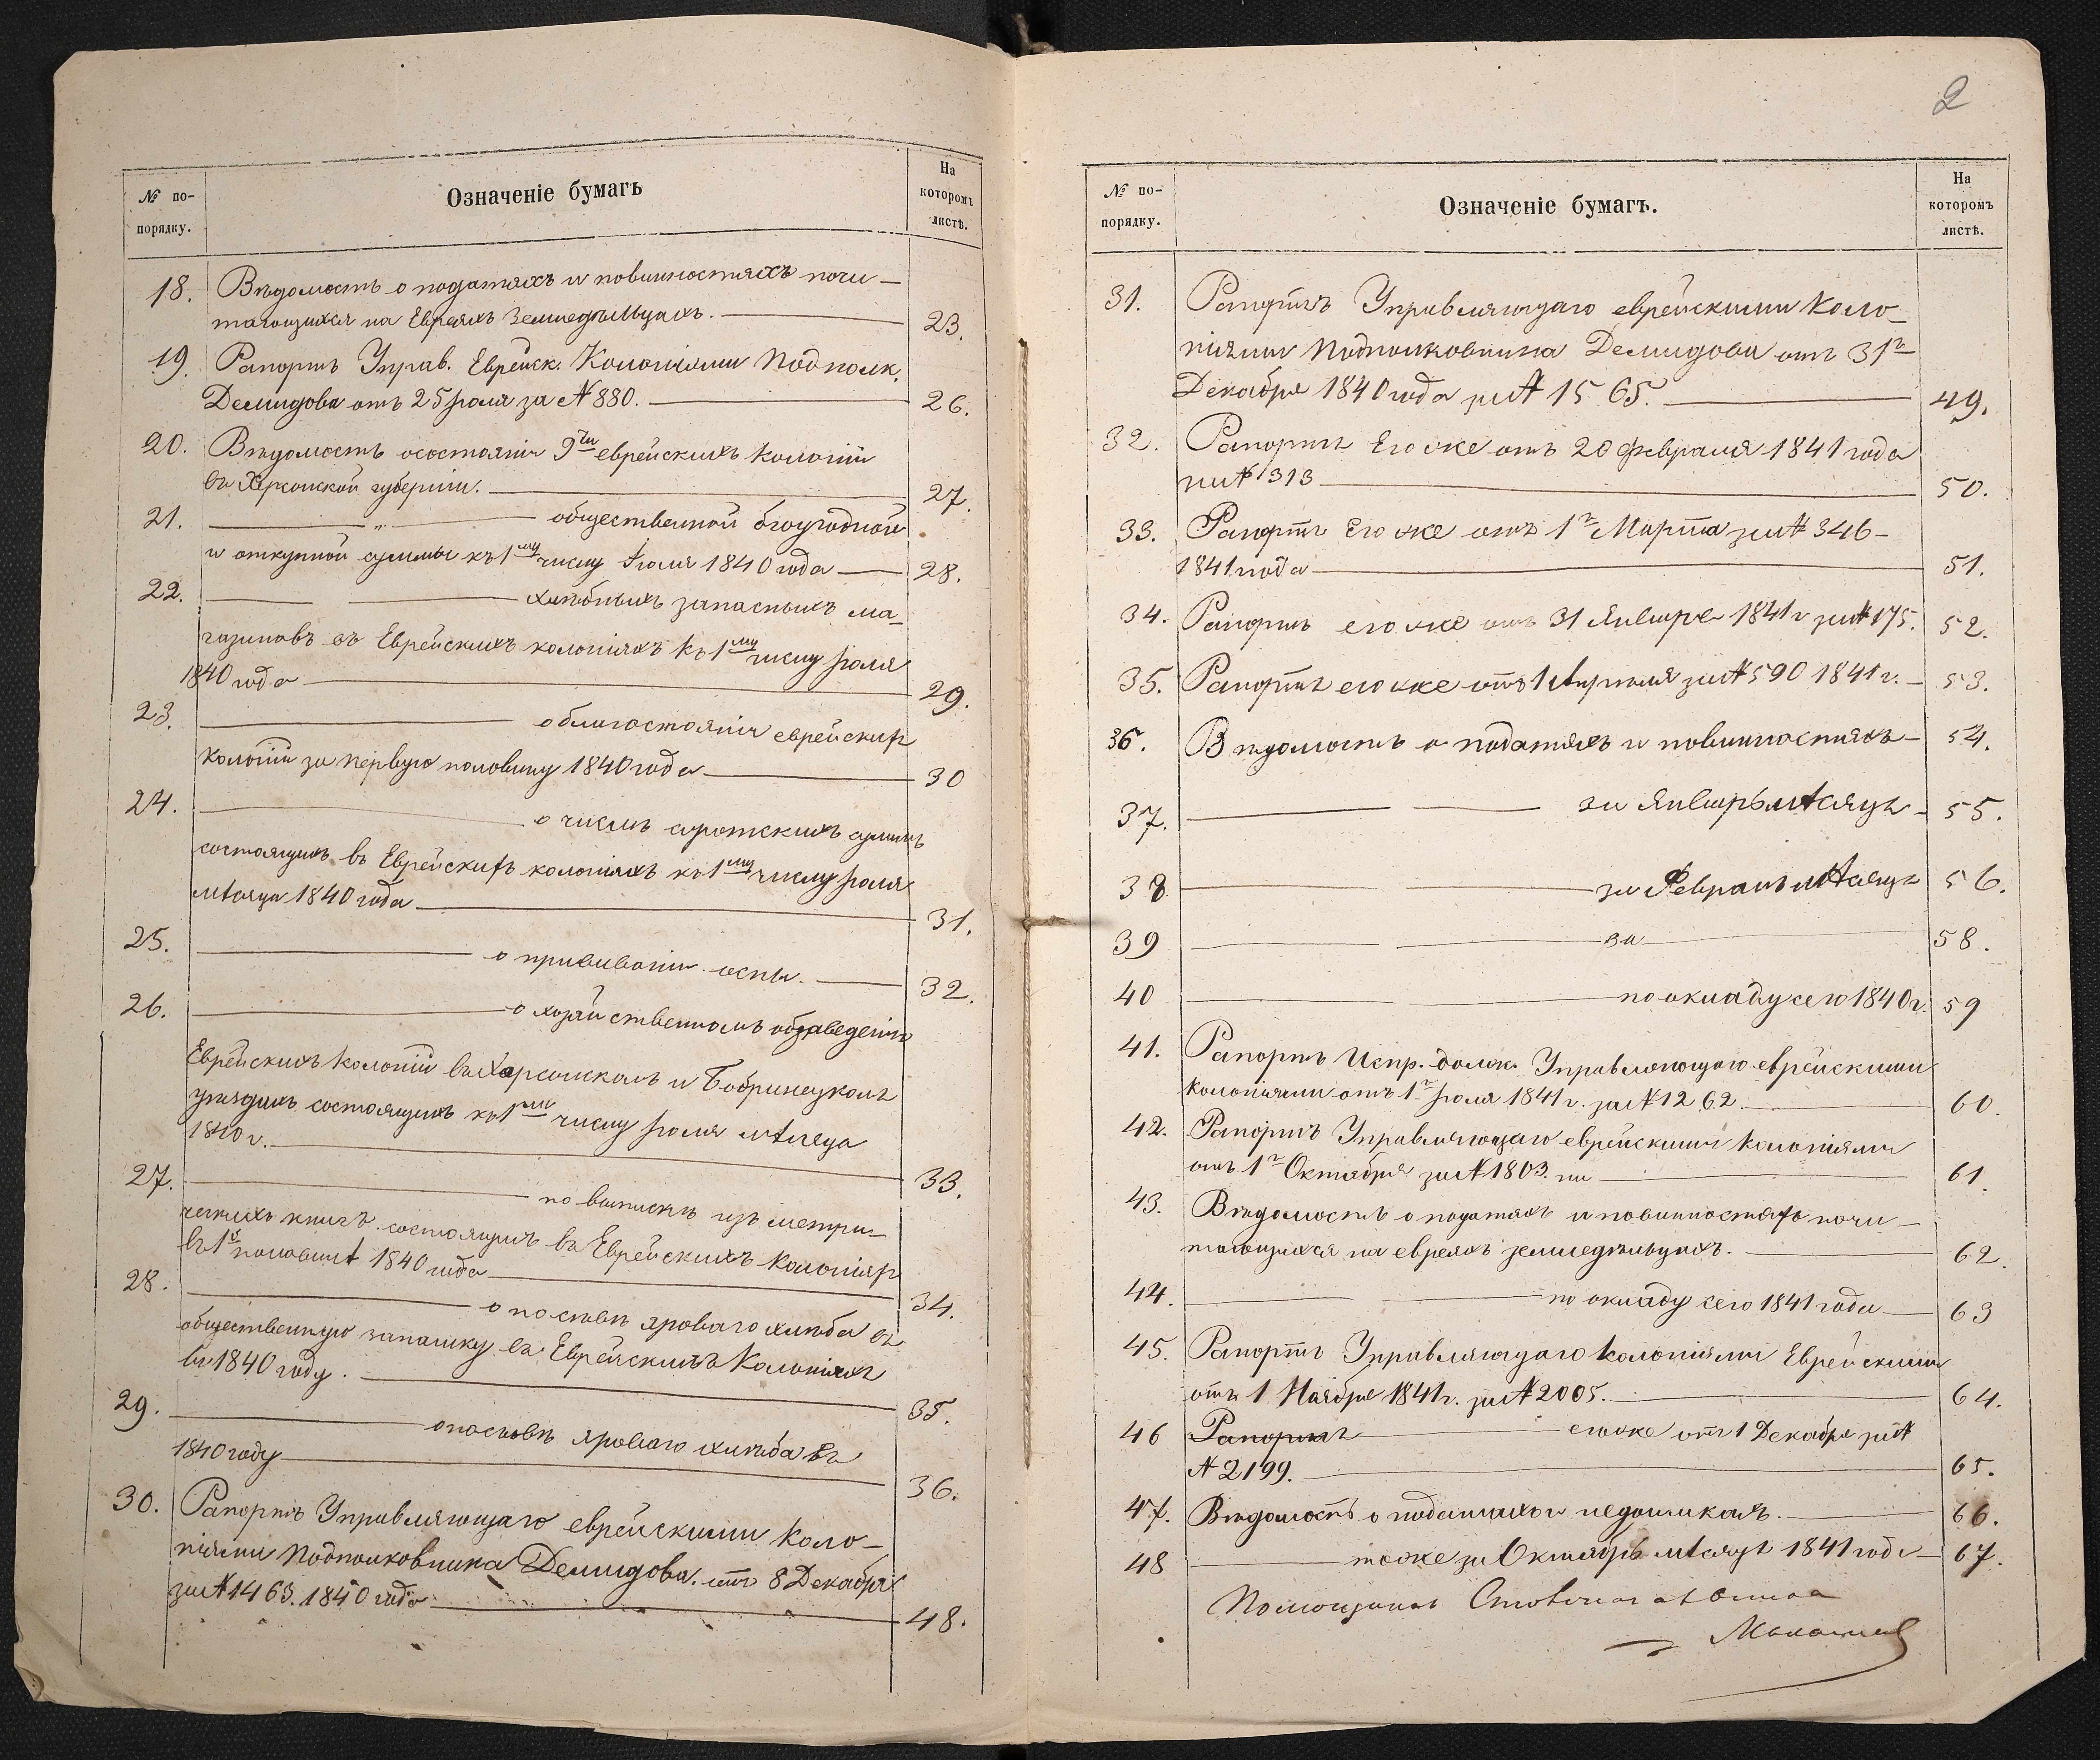 № по-
порядку.
Означеніе бумагъ
На
которомъ
листѣ.
18. Вѣдомость о податяхъ и повинностяхъ почи-
тающихся на Евреяхъ земледѣльцахъ. 23.
19. Рапортъ Управ. Еврейск. Колоніями Подполк.
Демидова отъ 25 Іюля за № 880. 26.
20. Вѣдомость о состояніи 9ти еврейскихъ колоній
въ Херсонской губерніи. 27.
21. — „ — общественной богоугодной
и откупной суммы къ 1му числу Іюля 1840 года 28.
22. хлѣбныхъ запасныхъ ма-
газиновъ въ Еврейскихъ колоніяхъ къ 1му числу Іюля
1840 года 29.
23. о благостояніи еврейских
колоній за первую половину 1840 года 30
24. о числѣ сиротскихъ суммъ
состоящихъ въ Еврейскихъ колоніяхъ къ 1му числу Іюля
мѣсяца 1840 года 31.
25. о прививаніи оспы. 32.
26. о хозяйственномъ обзаведеніи
Еврейскихъ колоній въ Херсонскомъ и Бобринецкомъ
уѣздахъ состоящихъ къ 1му числу Іюля мѣсяца
1840 г. 33.
27. по выпискѣ изъ метри-
ческихъ книгъ состоящихъ въ Еврейскихъ колоніях
въ 1й половинѣ 1840 года 34.
28. о посѣвѣ яроваго хлѣба въ
общественную запашку въ Еврейскихъ Колоніяхъ
въ 1840 году. 35.
29. о посѣвѣ яроваго хлѣба въ
1840 году 36.
30. Рапортъ Управляющаго еврейскими Коло-
ніями Подполковника Демидова. отъ 8 Декабря
за № 1463. 1840 года 48.
2
№ по-
порядку.
Означеніе бумагъ.
На
которомъ
листѣ.
31. Рапортъ Управляющаго еврейскими Коло-
ніями Подполковника Демидова отъ 31г
Декабря 1840 года за № 1565. 49.
32. Рапортъ Его же отъ 20 февраля 1841 года
за № 313 50.
33. Рапортъ Его же отъ 1г Марта за № 346-
1841 года 51.
34. Рапортъ его же отъ 31 Января 1841 г за № 175. 52.
35. Рапортъ его же отъ 1 Апрѣля за № 590 1841 г. 53.
36. Вѣдомость о податяхъ и повинностяхъ 54.
37. за Январь мѣсяцъ 55.
38 за Февраль мѣсяцъ 56.
39 за 58.
40 по окладу сего 1840 г. 59
41. Рапортъ Испр. долж. Управляющаго еврейскими
колоніями отъ 1г Іюля 1841 г. за № 1262. 60.
42. Рапортъ Управляющаго еврейскими колоніями
отъ 1г Октября за № 1803. 61.
43. Вѣдомость о податяхъ и повинностяхъ почи-
тающихся на евреяхъ земледѣльцахъ. 62.
44. по окладу сего 1841 года 63
45. Рапортъ Управляющаго колоніями Еврейскими
отъ 1 Ноября 1841 г. за № 2005. 64.
46 Рапортъ его же отъ 1 Декабря за №
№ 2199. 65.
47. Вѣдомость о податяхъ и недоимкахъ. 66.
48 тоже за Октябрь мѣсяцъ 1841 года 67.
Помощникъ